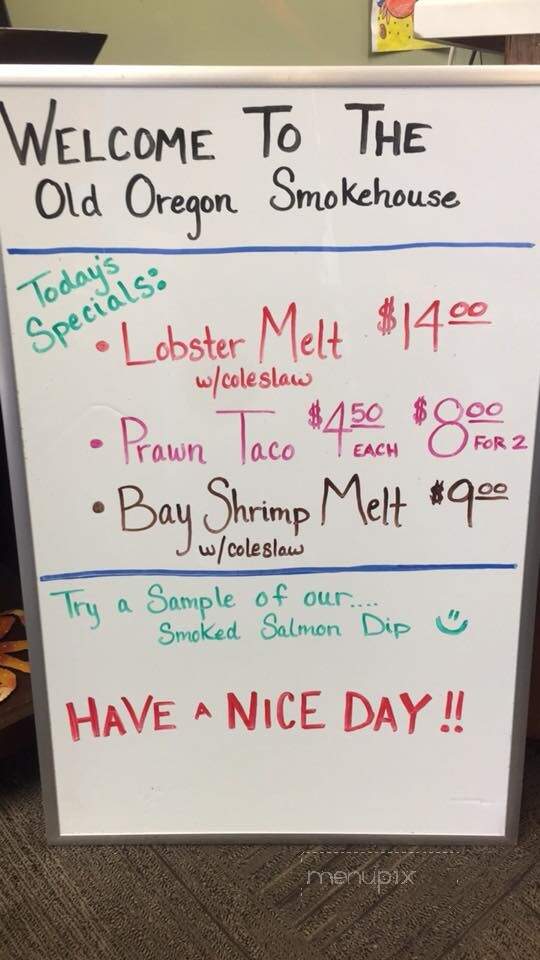 WELCOME TO THE
Old Oregon Smokehouse
Today's
Specials:
• Lobster Melt $14.00
w/coleslaw
• Prawn Taco $4.50 EACH $8.00 FOR 2
• Bay Shrimp Melt $9.00
w/coleslaw
Try a Sample of our....
Smoked Salmon Dip
HAVE A NICE DAY!!
menupix